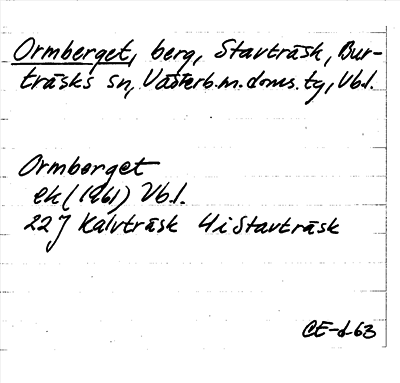 Ormberget, berg, Stavträsk, Bur-
träsks sn, Västerb.m.doms.tg, Vb.l.
Ormberget
ek (1961) Vb.l.
22J Kalvträsk 4i Stavträsk
CE-d-63